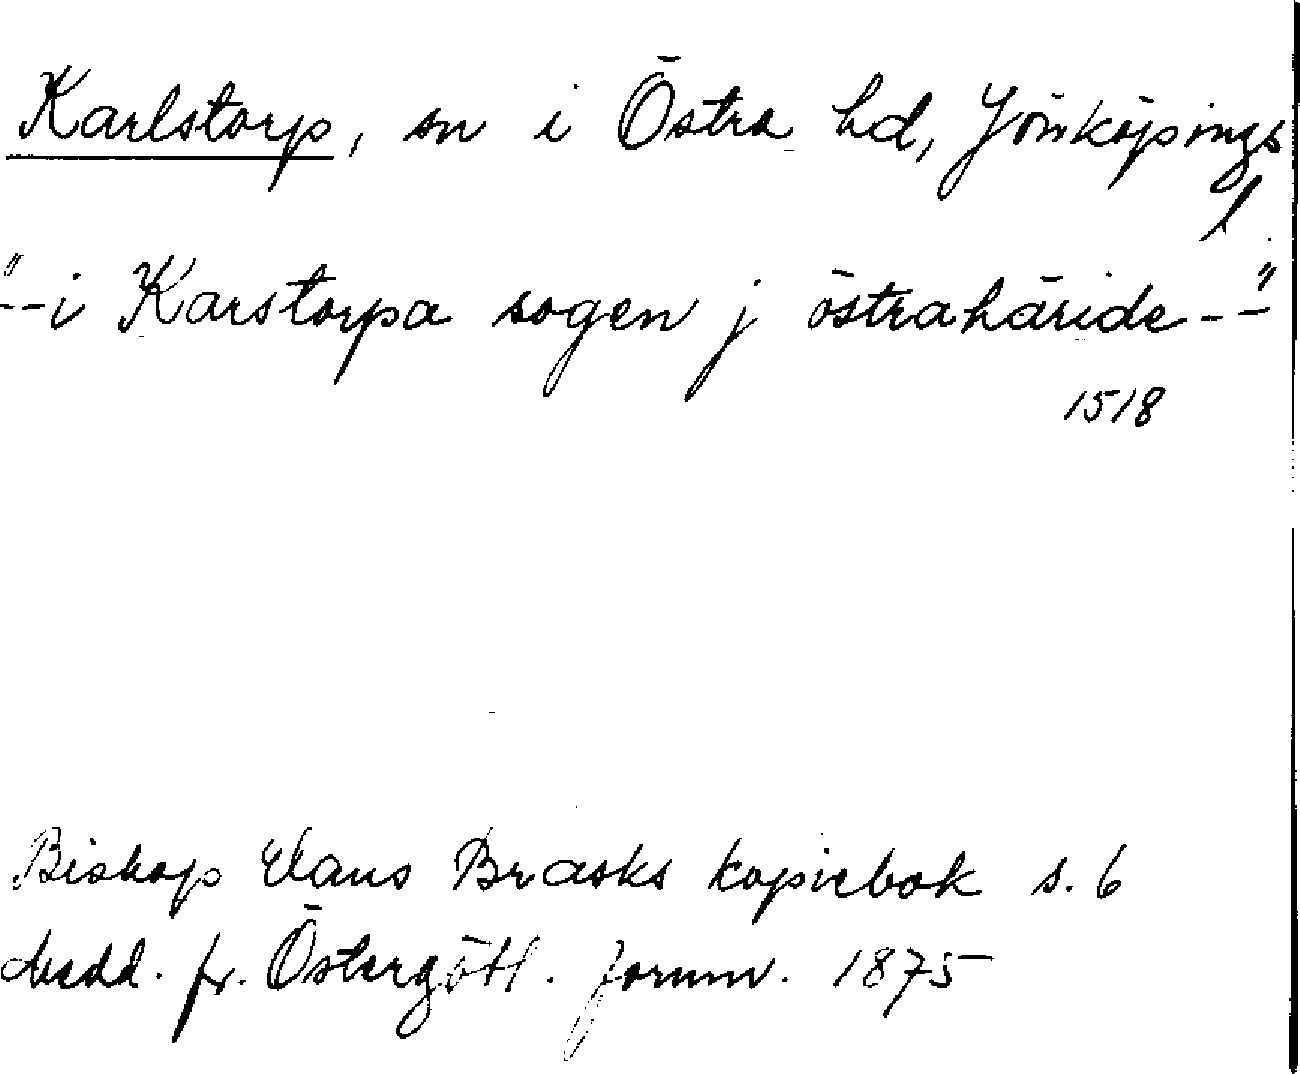 Karlstorp, sn i Östra hd, Jönköpings
l.
"--i Karstorpa sogen j östrahäride--"
1518
Biskop Hans Brasks kopiebok s. 6
Medd. fr. Östergötl. fornm. 1875